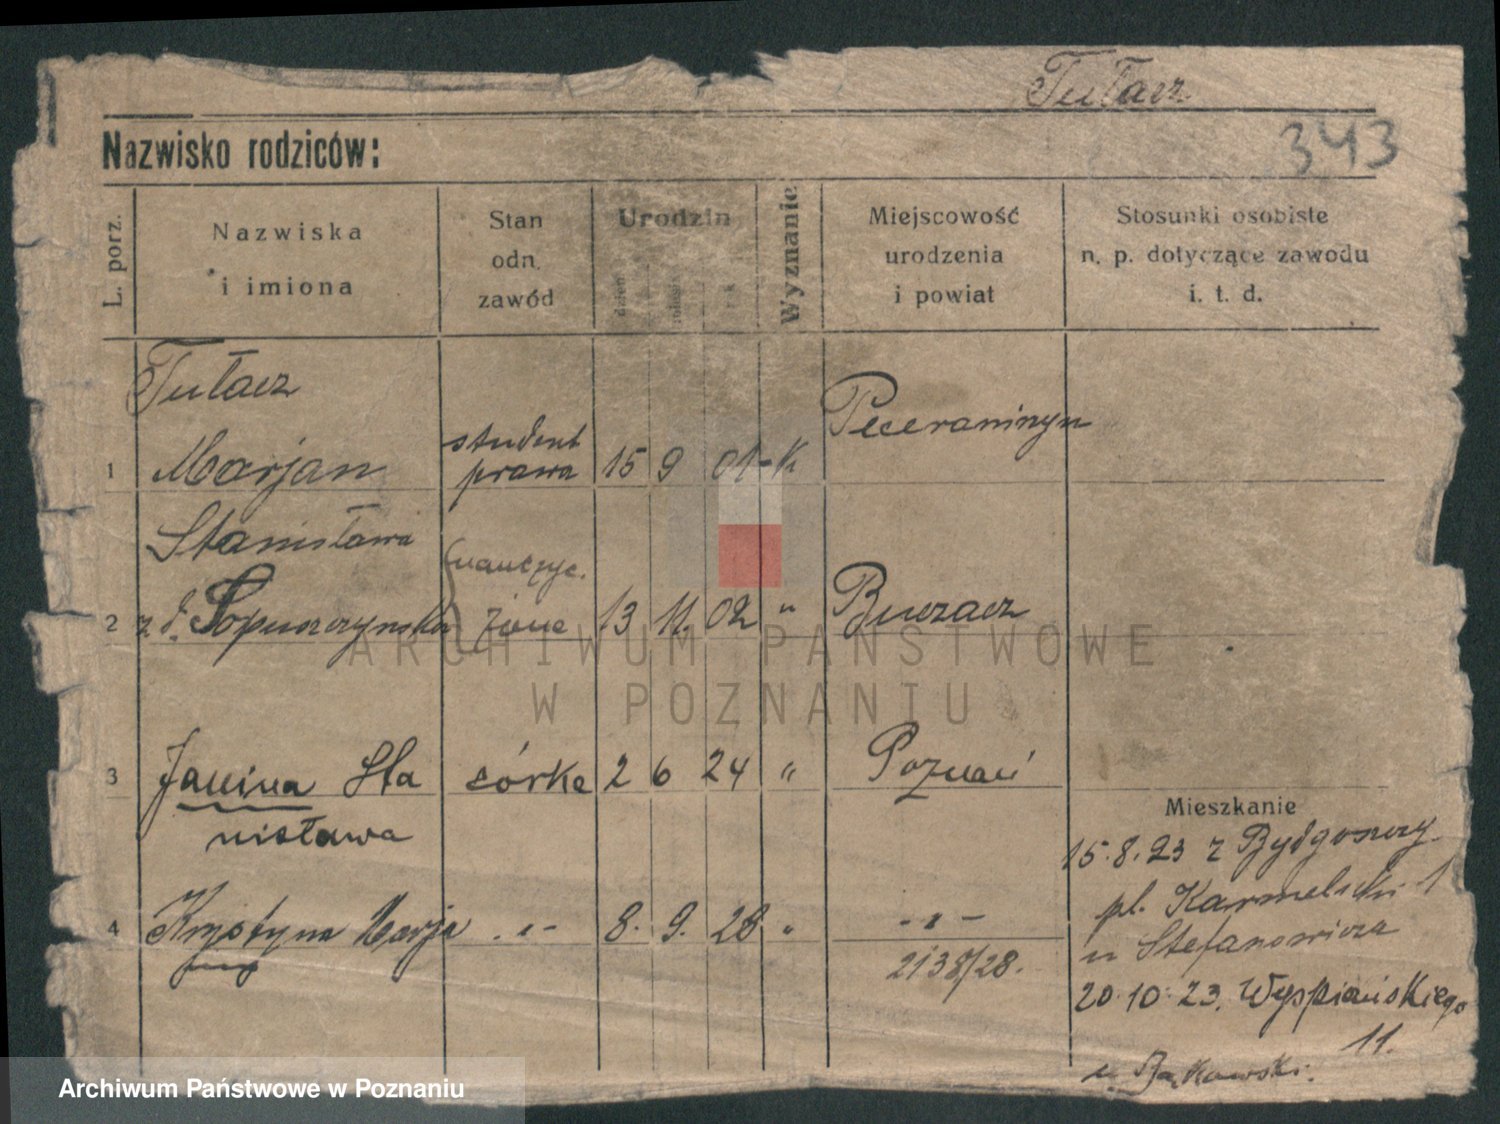 Tułacz
Nazwisko rodziców:
343
L. porz.
Nazwiska
i imiona
Stan
odn.
zawód
Urodzin
dzień
rok
Wyznanie
Miejscowość
urodzenia
i powiat
Stosunki osobiste
n. p. dotyczące zawodu
i. t. d.
Tułacz
1 Marjan
student
prawa
15 9 01 - k
Peceraninyn
Stanisława
2 z d. Sopuszzynska
nauczyc.
żona
13 11. 02 "
Buczacz
3 Janina Sta
nisława
córka 2 6 24 "
Poznań
4 Krystyna Marja
-"- 8. 9. 28 "
-"-
2138/28.
Mieszkanie
15.8.23 z Bydgoszczy
pl. Karmelicki 1
u Stefanowicza
20.10.23. Wyspiańskiego
11.
u Bąkowski.
ARCHIWUM PAŃSTWOWE
W POZNANIU
Archiwum Państwowe w Poznaniu